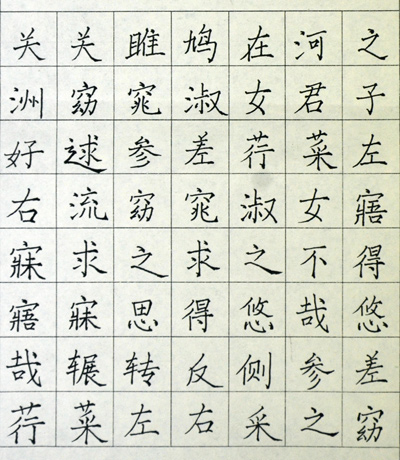 关关雎鸠在河之
洲窈窕淑女君子
好逑参差荇菜左
右流窈窕淑女寤
寐求之求之不得
寤寐思得悠哉悠
哉辗转反侧参差
荇菜左右采之窈